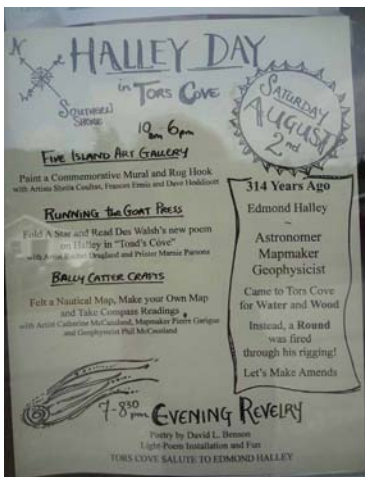 N
HALLEY DAY
in TORS COVE
SOUTHERN
SHORE
SATURDAY
AUGUST
2nd
10am 6pm
FIVE ISLAND ART GALLERY
Paint a Commemorative Mural and Rug Hook
with Artists Sheila Coultas, Frances Ennis and Dave Hoddinott
RUNNING the GOAT PRESS
Fold A Star and Read Des Walsh's new poem
on Halley in "Toad's Cove"
with Artist Rachel Dragland and Printer Marnie Parsons
BALLY CATTER CRAFTS
Felt a Nautical Map, Make your Own Map
and Take Compass Readings
with Artist Catherine McCausland, Mapmaker Pierre Garigue
and Geophysicist Phil McCausland
314 Years Ago
Edmond Halley
~
Astronomer
Mapmaker
Geophysicist
Came to Tors Cove
for Water and Wood
Instead, a Round
was fired
through his rigging!
Let's Make Amends
7-830 pm EVENING REVELRY
Poetry by David L. Benson
Light-Poem Installation and Fun
TORS COVE SALUTE TO EDMOND HALLEY